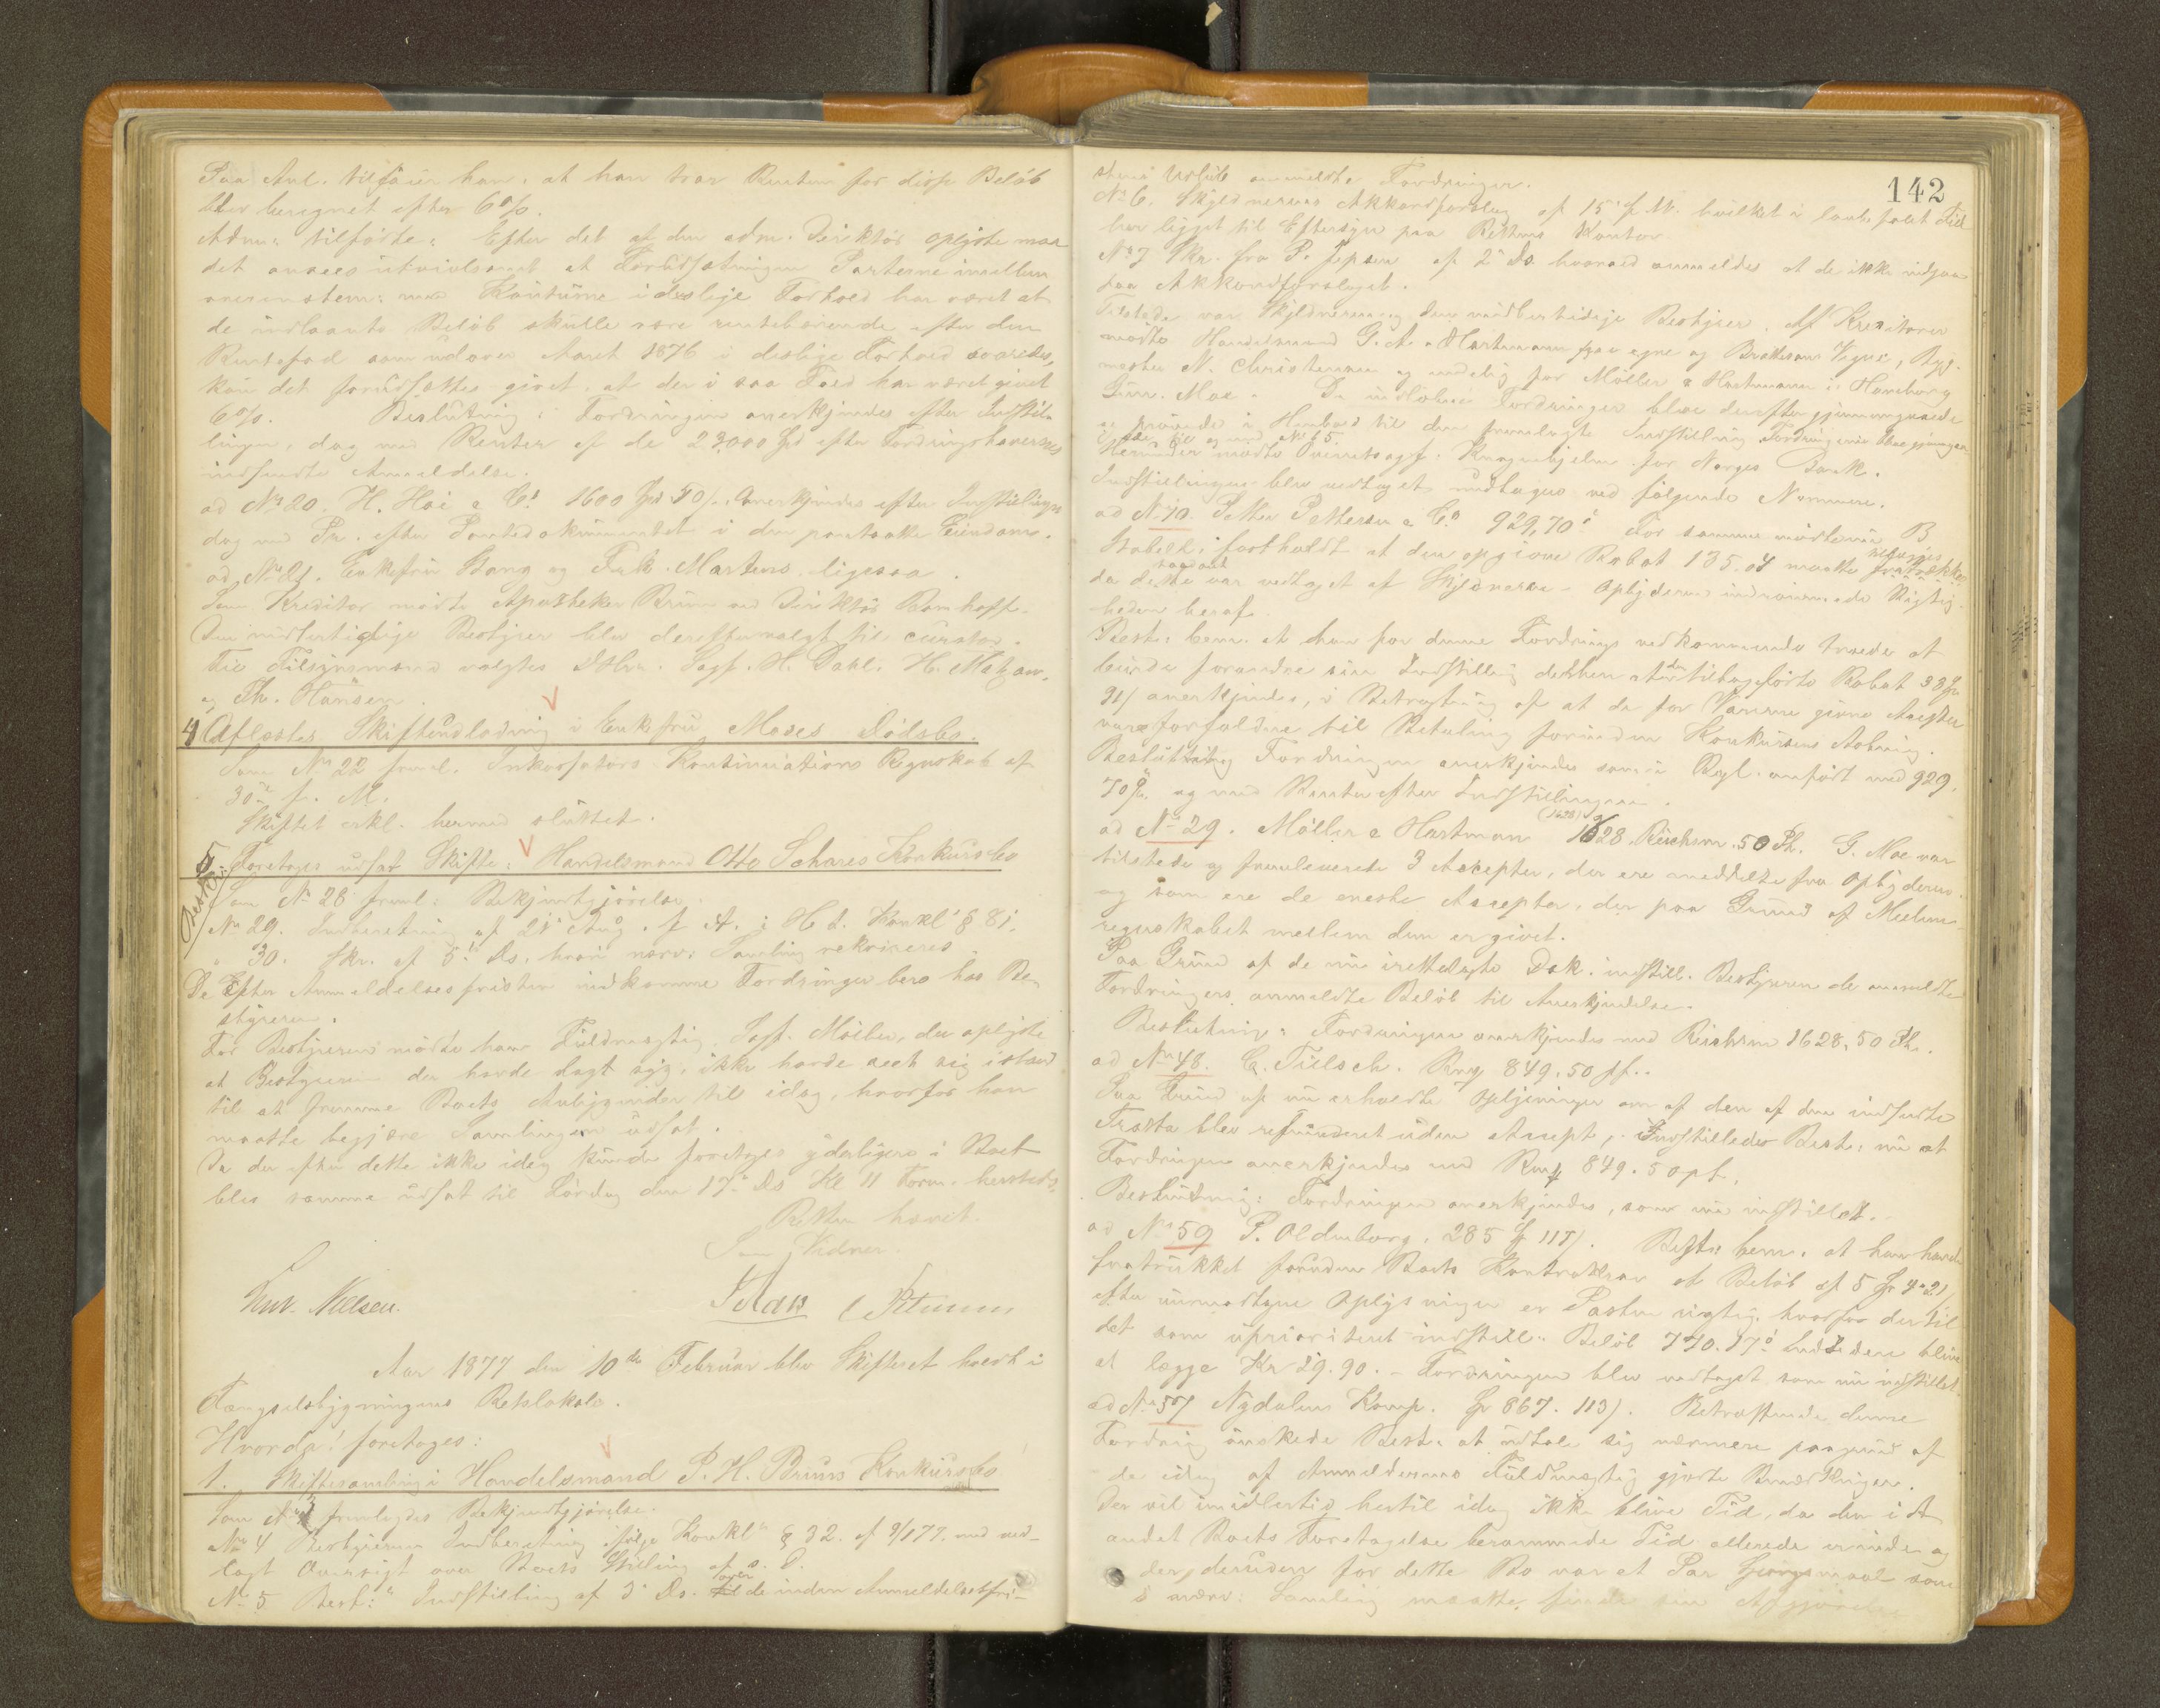 Paa Anl. tilføier han, at han tror Renten for disse Beløb
blev beregnet efter 6%.
Adm: tilførte: Efter det af den adm. Direktør oplyste maa
det ansees utvivlsomt at Forudsætningen Parterne imellem
overenstem: med Kouturne i deslige Forhold har været at
de indlaante Beløb skulle være rentebærende efter den
Rentefod som udover Aaret 1876 i deslige Forhold svaredes,
kan det forudsættes givet, at der i saa Fald har været givet
6%. Beslutning: Fordringen anerkjendes efter Indstil-
lingen, dog med Renter af de 23000 Spd efter Fordringshaverens
indsendte Anmeldelse.
ad No 20. H. Hoi & Co. 1600 Spd 50/. Anerkjendes efter Indstillingen
dog med Pr. efter Pantedokumentet i den pantsatte Eiendom.
ad No 21. Enkefru Bang og Frk. Martens ligesaa.
Som Kreditor mødte Apotheker Bruun ved Direktør Bomhoff.
Den midlertidige Bestyrer blev derefter valgt til curator.
Til Tilsynsmænd valgtes DHrr. Sagf. H. Dahl, H.
og Th. Hansen.
4 Afløstes Skifteudlodning i Enkefru Moses Dødsbo.
Som No 22 freml. Inkassators Kontinuations Regnskab af
30te f. M.
Skiftet erkl. hermed sluttet.
5. Foretoges udsat Skifte: Handelsmand Otto Schares Konkursbo
Som No 28 freml: Bekjendtgjørelse.
No 29. Indberetning af 21 Aug. f. A. i H. t. Konkl § 81.
" 30. Skr. af 5. Ds. hvori nærv: Samling rekvireres.
De Efter Anmeldelsesfristen indkomne Fordringer bero hos Be-
styreren.
For Bestyreren mødte hans Fuldmægtig, Sagf. Møller, der oplyste
at Bestyreren der havde lagt syg, ikke havde seet sig istand
til at fremme Boets Anliggender til idag, hvorfor han
maatte begjære Samlingen udsat.
Da der efter dette ikke idag kunde foretages yderligere i Boet
blev samme udsat til Lørdag den 17. Ds Kl 11 Form. hersteds.
Retten hævet.
Som Vidner.
Nielsen.
Aar 1877 den 10de Februar blev Skifteret holdt i
Fængselsbygningens Retslokale.
Hvorda! foretoges:
1. Skiftesamling i Handelsmand P. H. Bruns Konkursbo
Som No 3 fremlagdes Bekjendtgjørelse.
No 4 Bestyrerens Indberetning ifølge Konkl § 32. af 9/1 77. med ved-
lagt Oversigt over Boets Stilling af s. D.
No 5 Best: Indstilling af 3 Ds. over de inden Anmeldelsesfri-
142
stens Udløb anmeldte Fordringer.
No 6. Skyldnerens Akkordforslag af 15 f. M. hvilket i lovbefalet Tid
har ligget til Eftersyn paa Rettens Kontor.
No 7 Skr. fra P. Jepsen af 2 Ds. hvorved anmeldes at de ikke indgaar
paa Akkordforslaget.
Tilstede var Skyldneren og den midlertidige Bestyrer. Af Kreditorer
mødte Handelsmand G. A. Hartmann paa egne og Brattesens Vegne, Byg-
mester N. Christensen og endelig for Møller & Hartmann i Hamburg
Gunn. Moe. De indløbne Fordringer blev derefter gjennemgaaede
og prøvede i Henhold til den fremlagte Indstilling. Fordringerne blev gjennem-
gaaet til og med No 65.
Herunder mødte Overretssagf. for Norges Bank.
Indstillingen blev vedtaget undtagen ved følgende Nummere.
ad No 10. Petter Pettersen & Co 929,70. For samme mødte nu B
Stabell; fastholdt at den opgivne Rabat 135.04 maatte fratrækkes
da dette var vedtaget af Skyldneren. Opbyderen indrømmede Rigtig-
heden heraf.
Best: bem. at han for denne Fordrings vedkommende troede at
burde forandre sin Indstilling derhen at den tilbageførte Rabat 33 Sp
91/ anerkjendes, i Betragtning af at de for Varerne givne Accepter
vare forfaldne til Betaling forinden Konkursens Aabning.
Beslutning Fordringen anerkjendes som i Regl. anført med 929,
70 og med Renter efter Indstillingen.
ad No 29. Møller & Hartman (1628) 1628 Reichsm. 50 Pf. G. Moe var
tilstede og fremleverede 3 Accepter, der ere meddelte fra Opbyderen
og som ere de eneste Accepter, der paa Grund af Mellem-
regnskabet mellem dem er givet.
Paa Grund af de nu irettelagte Dok. indstill. Bestyreren de anmeldte
Fordringers anmeldte Beløb til Anerkjendelse.
Beslutning: Fordringen anerkjendes med Reichsm 1628,50 Pf.
ad No 48. C. Tielsch. Rmg 849.50 pf.
Paa Grund af nu erholdte Oplysninger om at den af dem indsendte
Tratta blev returneret uden Accept, indstillede Best: nu at
Fordringen anerkjendes med Rmk 849.50 pf.
Beslutning: Fordringen anerkjendes, som nu indstillet.
ad No 59 P. Oldenborg, 285 Sp 117/. Best: bem. at han havde
fratrukket formedens Boets Kontrakrav et Beløb af 5 Sp 4-21/
efter nærmodtagne Oplysninger er Posten rigtig, hvorfor dertil
det som uprioriteret indstill. Beløb 770.17 indstedere blive
at lægge Kr 29.90. – Fordringen blev vedtaget som nu indstillet.
ad No 57 Nydalens Komp. Sp 867. 113/. Betræffende denne
Fordring ønskede Best. at udtale sig nærmere paagrund af
de idag af Anmelderens Fuldmægtig gjorte Bemærkninger.
Der vil imidlertid hertil idag ikke blive Tid, da den i et
andet Boets Foretagelse berammede Tid allerede er inde og
der desuden for dette Bo var et Par Spørgsmaal som
i nærv: Samling maatte finde sin Afgjørelse